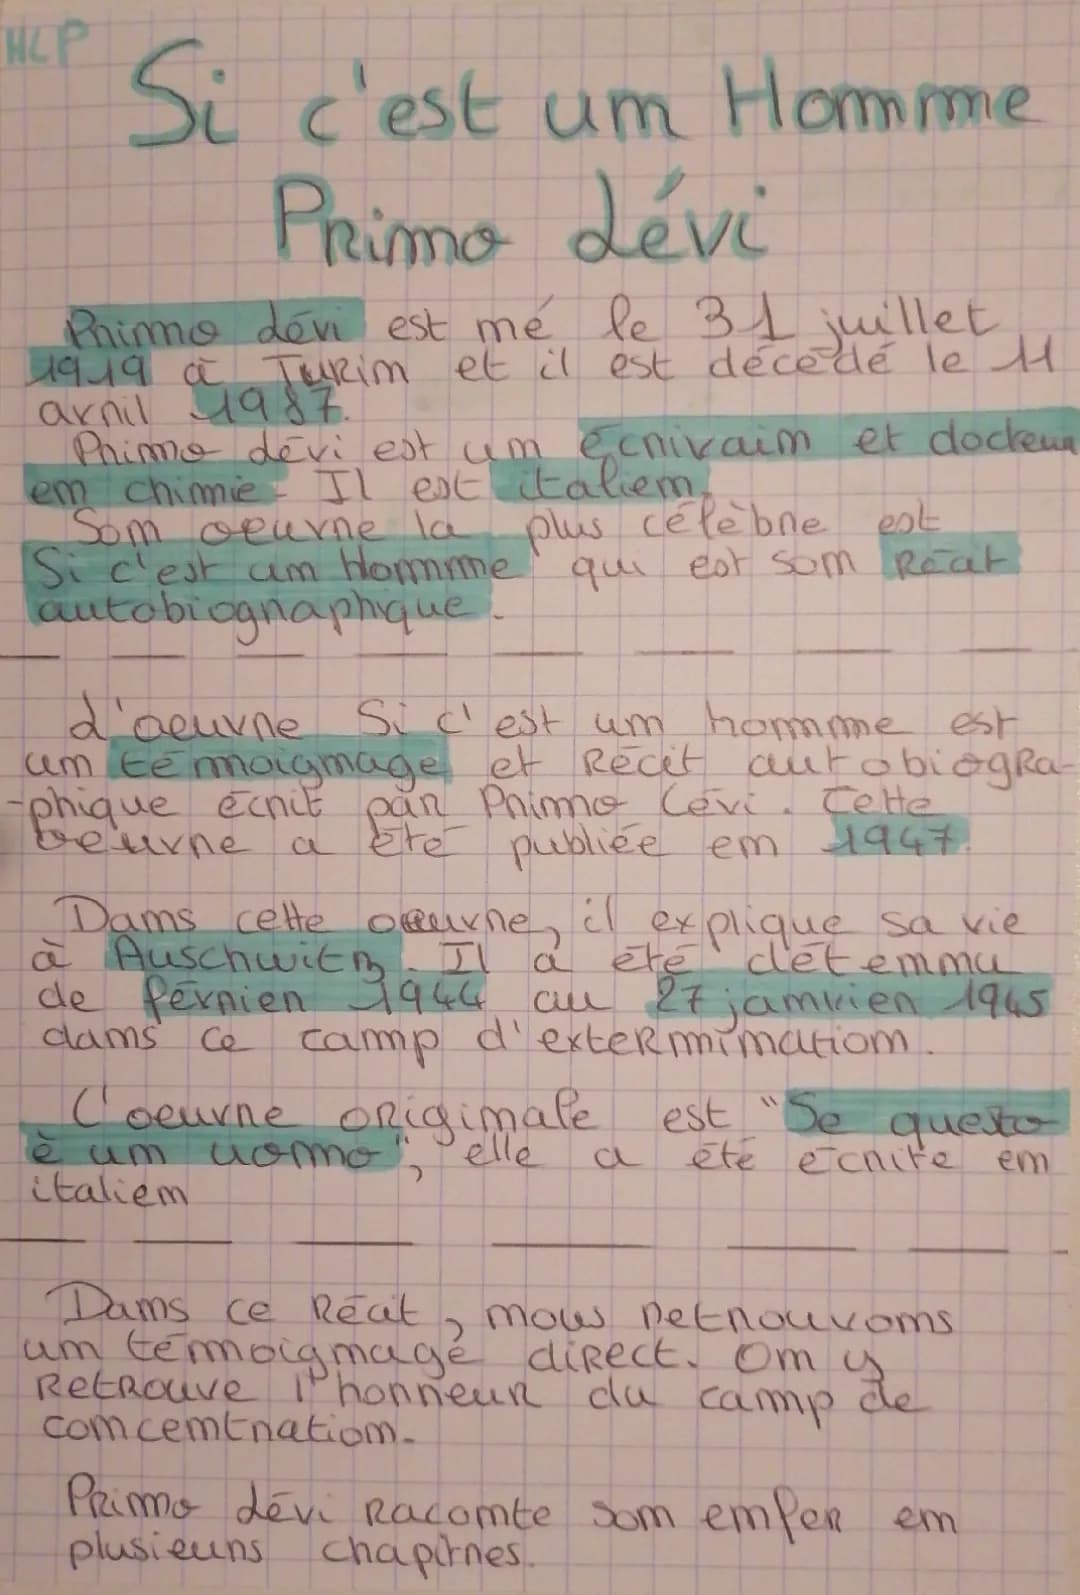 HLP
Si c'est un Homme
Primo Lévi
Primo Lévi est né le 31 juillet
1919 à Turin et il est décédé le 11
avril 1987.
Primo Lévi est un écrivain et docteur
en chimie. Il est italien.
Son oeuvre la plus célèbre est
Si c'est un Homme qui est son Récit
autobiographique.
L'oeuvre Si c'est un homme est
un témoignage et Récit autobiogra-
-phique écrit par Primo Lévi. Cette
oeuvre a été publiée en 1947.
Dans cette oeuvre, il explique sa vie
à Auschwitz. Il a été détennu
de février 1944 au 27 janvier 1945
dans ce camp d'extermination.
L'oeuvre originale est "Se questo
è un uomo", elle a été écrite en
italien
Dans ce Récit, nous retrouvons
un témoignage direct. On y
Retrouve l'horreur du camp de
concentration.
Primo Lévi Raconte son enfer en
plusieurs chapitres.